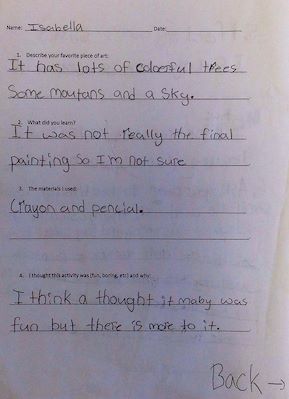 Name: Isabella Date:
1. Describe your favorite piece of art:
It has lots of colorful trees
Some moutans and a sky.
2. What did you learn?
It was not really the final
painting so I'm not sure
3. The materials I used:
Crayon and pencial.
4. I thought this activity was (fun, boring, etc) and why:
I think a thought it maby was
fun but there is more to it.
Back →